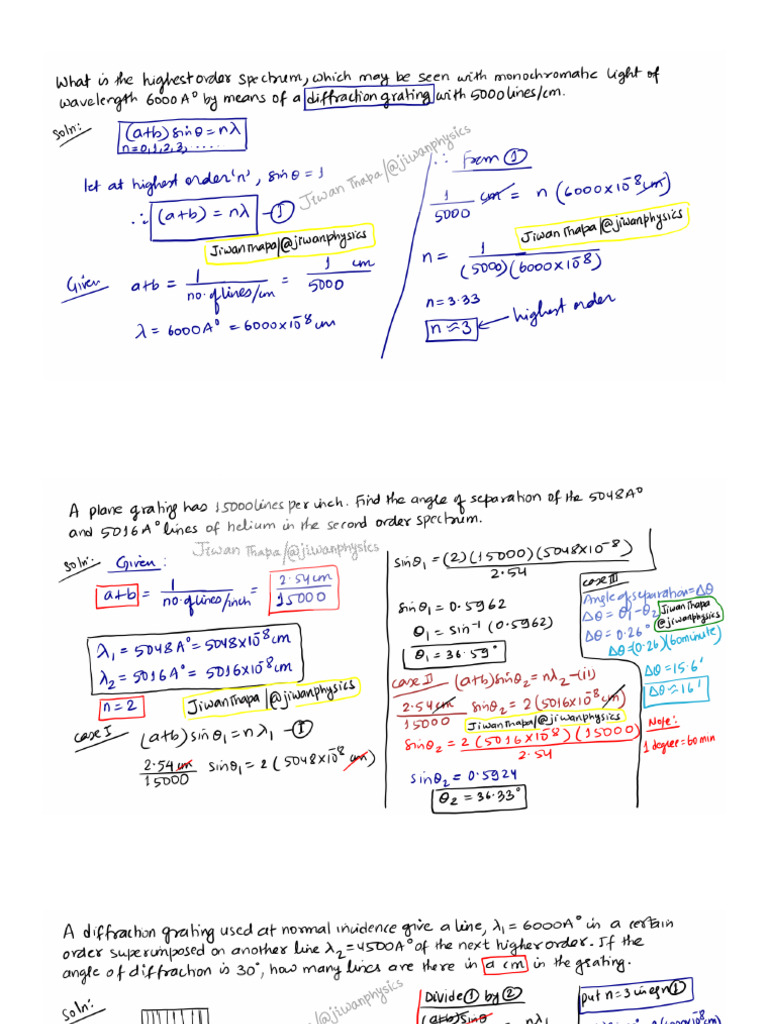 What is the highest order spectrum, which may be seen with monochromatic light of
wavelength 6000A° by means of a diffraction grating with 5000 lines/cm.
Soln:
(a+b) sinθ = nλ
n=0,1,2,3,.....
let at highest order 'n', sinθ = 1
∴ (a+b) = nλ —①
JiwanThapa/@jiwanphysics
Given a+b = 1/no. of lines/cm = 1/5000 cm
λ = 6000A° = 6000×10⁻⁸ cm
Jiwan Thapa/@jiwanphysics
∴ From ①
1/5000 cm = n (6000×10⁻⁸ cm)
JiwanThapa/@jiwanphysics
n = 1/(5000)(6000×10⁻⁸)
n=3.33
n≈3 ← highest order
A plane grating has 15000 lines per inch. Find the angle of separation of the 5048A°
and 5016A° lines of helium in the second order spectrum.
Soln: Given: Jiwan Thapa/@jiwanphysics
a+b = 1/no. of lines/inch = 2.54 cm/15000
λ₁ = 5048A° = 5048×10⁻⁸ cm
λ₂ = 5016A° = 5016×10⁻⁸ cm
n=2
JiwanThapa/@jiwanphysics
Case I (a+b) sinθ₁ = nλ₁ —①
2.54 cm/15000 sinθ₁ = 2 (5048×10⁻⁸ cm)
sinθ₁ = (2)(15000)(5048×10⁻⁸)/2.54
sinθ₁ = 0.5962
θ₁ = sin⁻¹ (0.5962)
θ₁ = 36.59°
Case II (a+b) sinθ₂ = nλ₂ —(ii)
2.54 cm/15000 sinθ₂ = 2(5016×10⁻⁸ cm)
JiwanThapa/@jiwanphysics
sinθ₂ = 2 (5016×10⁻⁸)(15000)/2.54
sinθ₂ = 0.5924
θ₂ = 36.33°
Case III
Angle of separation = Δθ
Δθ = θ₁-θ₂
JiwanThapa
@jiwanphysics
Δθ = 0.26°
Δθ = (0.26)(60minute)
Δθ = 15.6'
Δθ ≈ 16'
Note:
1 degree = 60 min
A diffraction grating used at normal incidence give a line, λ₁ = 6000A° in a certain
order superimposed on another line λ₂ = 4500A° of the next higher order. If the
angle of diffraction is 30°, how many lines are there in a cm in the grating.
Soln:
@jiwanphysics
Divide ① by ②
(a+b) sinθ nλ₁
put n=3 in eqn ①